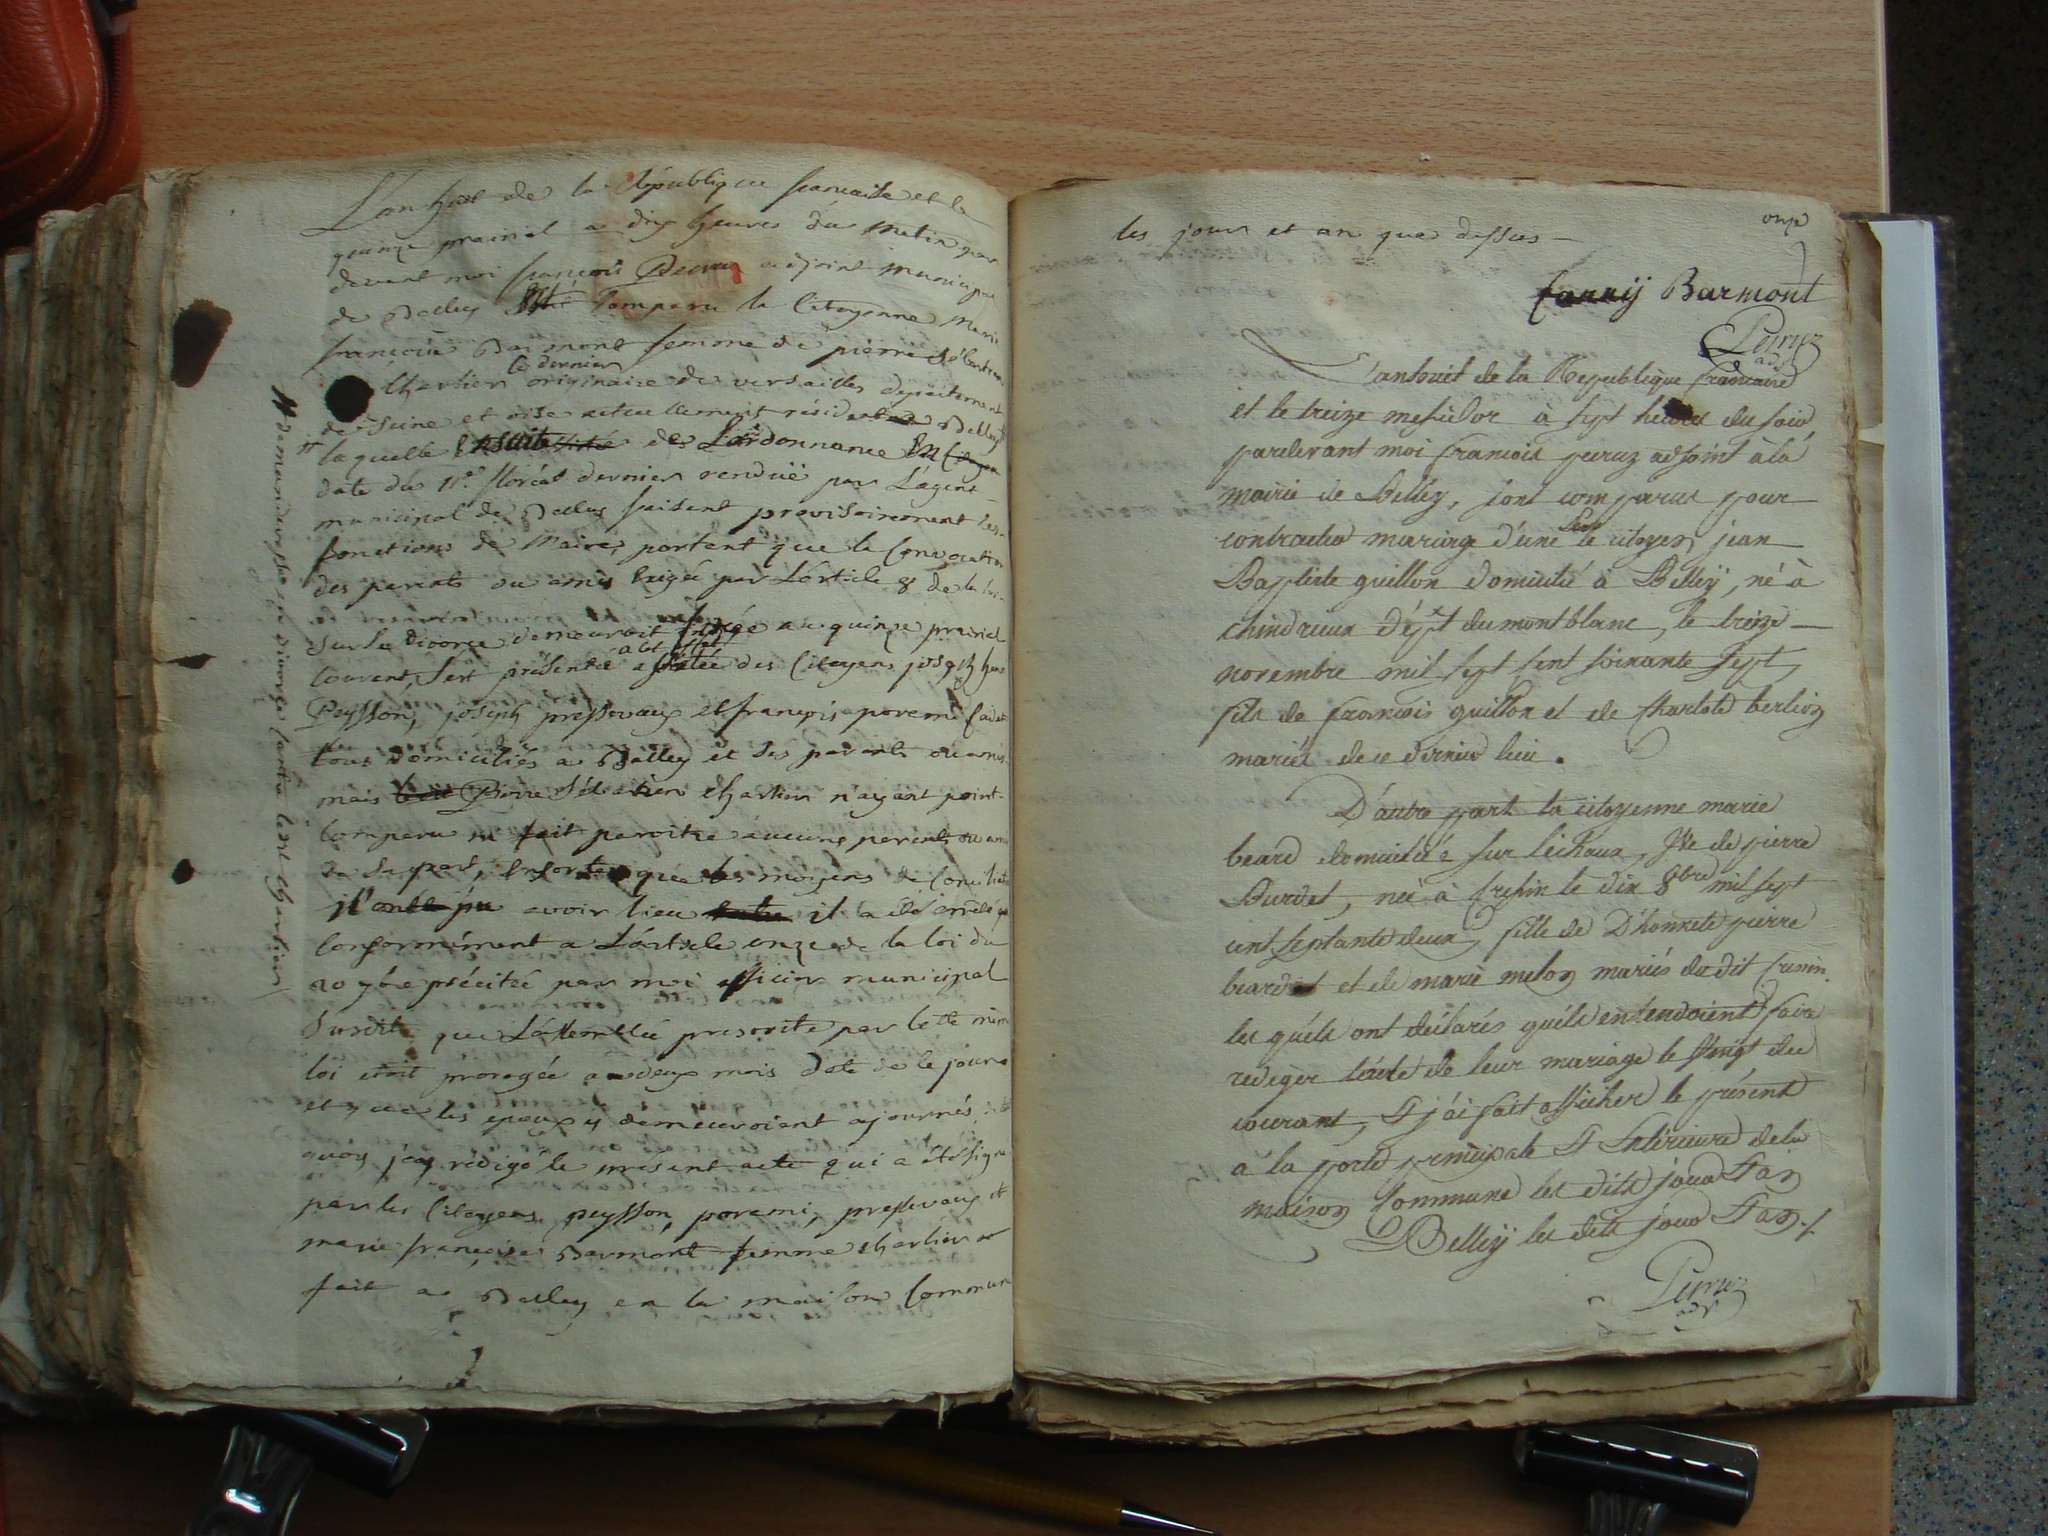 L'an huit de la République francaise et le
quinze prairial a dix heures du Matin par
devant moi françois Peiruz adjoint municipal
de Belley Comparu la Citoyenne Marie
françoise Barmont femme de pierre Sébastien
Charlier le dernier originaire de versailles département
de Seine et oise actuellement résidant a Belley
laquelle Ensuite de L'ordonnance En
date du 11.e floréal dernier rendüe par L'agent
municipal de Belley faisant provisoirement les
fonctions de Maire, portant que la Convocation
des parents ou amis Exigée par L'article 8 de la loi
sur le divorce demeuroit fixée au quinze prairial
Courant, S'est présentée a cet effet assistée des Citoyens joseph
Peysson, joseph pressevaux et françois poremi Cadet
tous domiciliés a Belley et ses parents ou amis
mais Pierre Sébastien Charlier n'ayant point
Comparu ni fait paroitre aucuns parents ou amis
de Sa part, Ensorte que les moyens de Conciliation
n'ont pu avoir lieu il a été arrêté que
Conformément a L'article onze de la loi du
20 7bre précitée par moi officier municipal
Susdit que L'assemblée prescrite par cette même
loi etoit prorogée a deux mois date de ce jour
et que les epoux y demeuroient ajournés
quoy j'ay rédigé le present acte qui a été signé
par les Citoyens peysson, poremi, pressevaux et
marie françoise Barmont femme Charlier
fait a Belley en la maison Commune
# demanderesse en divorce contre led. Charlier
onze
les jours et an que dessus
fanny Barmont
Peiruz
adj.
L'an huit de la Republique francaise
et le treize mesidor à sept heures du soir
pardevant moi francois peiruz adjoint à la
mairie de Belley, sont comparus pour
contracter mariage d'une part le citoyen jean
Baptiste guillon domicilié à Belleÿ, né à
chindrieux dép.t du montblanc, le treize
novembre mil sept cent soixante sept,
fils de francois guillon et de charlote berlion
mariés de ce dernier lieu.
D'autre part la citoyenne marie
beard domiciliée sur lechaux, V.e de pierre
Burdet, née à fresin le dix 8bre mil sept
cent septante deux, fille de D'honnete pierre
beard et de marie melon mariés du dit fresin.
les quels ont déclarés qu'ils entendoient faire
rediger l'acte de leur mariage le vingt du
courant, & j'ai fait afficher le présent
à la porte principale & Exterieure de la
maison Commune les dits jour & an
Belleÿ les dits jour & an ./.
Peiruz
adj.